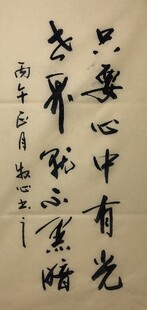 只要心中有光
世界就不黑暗
丙午正月牧心书